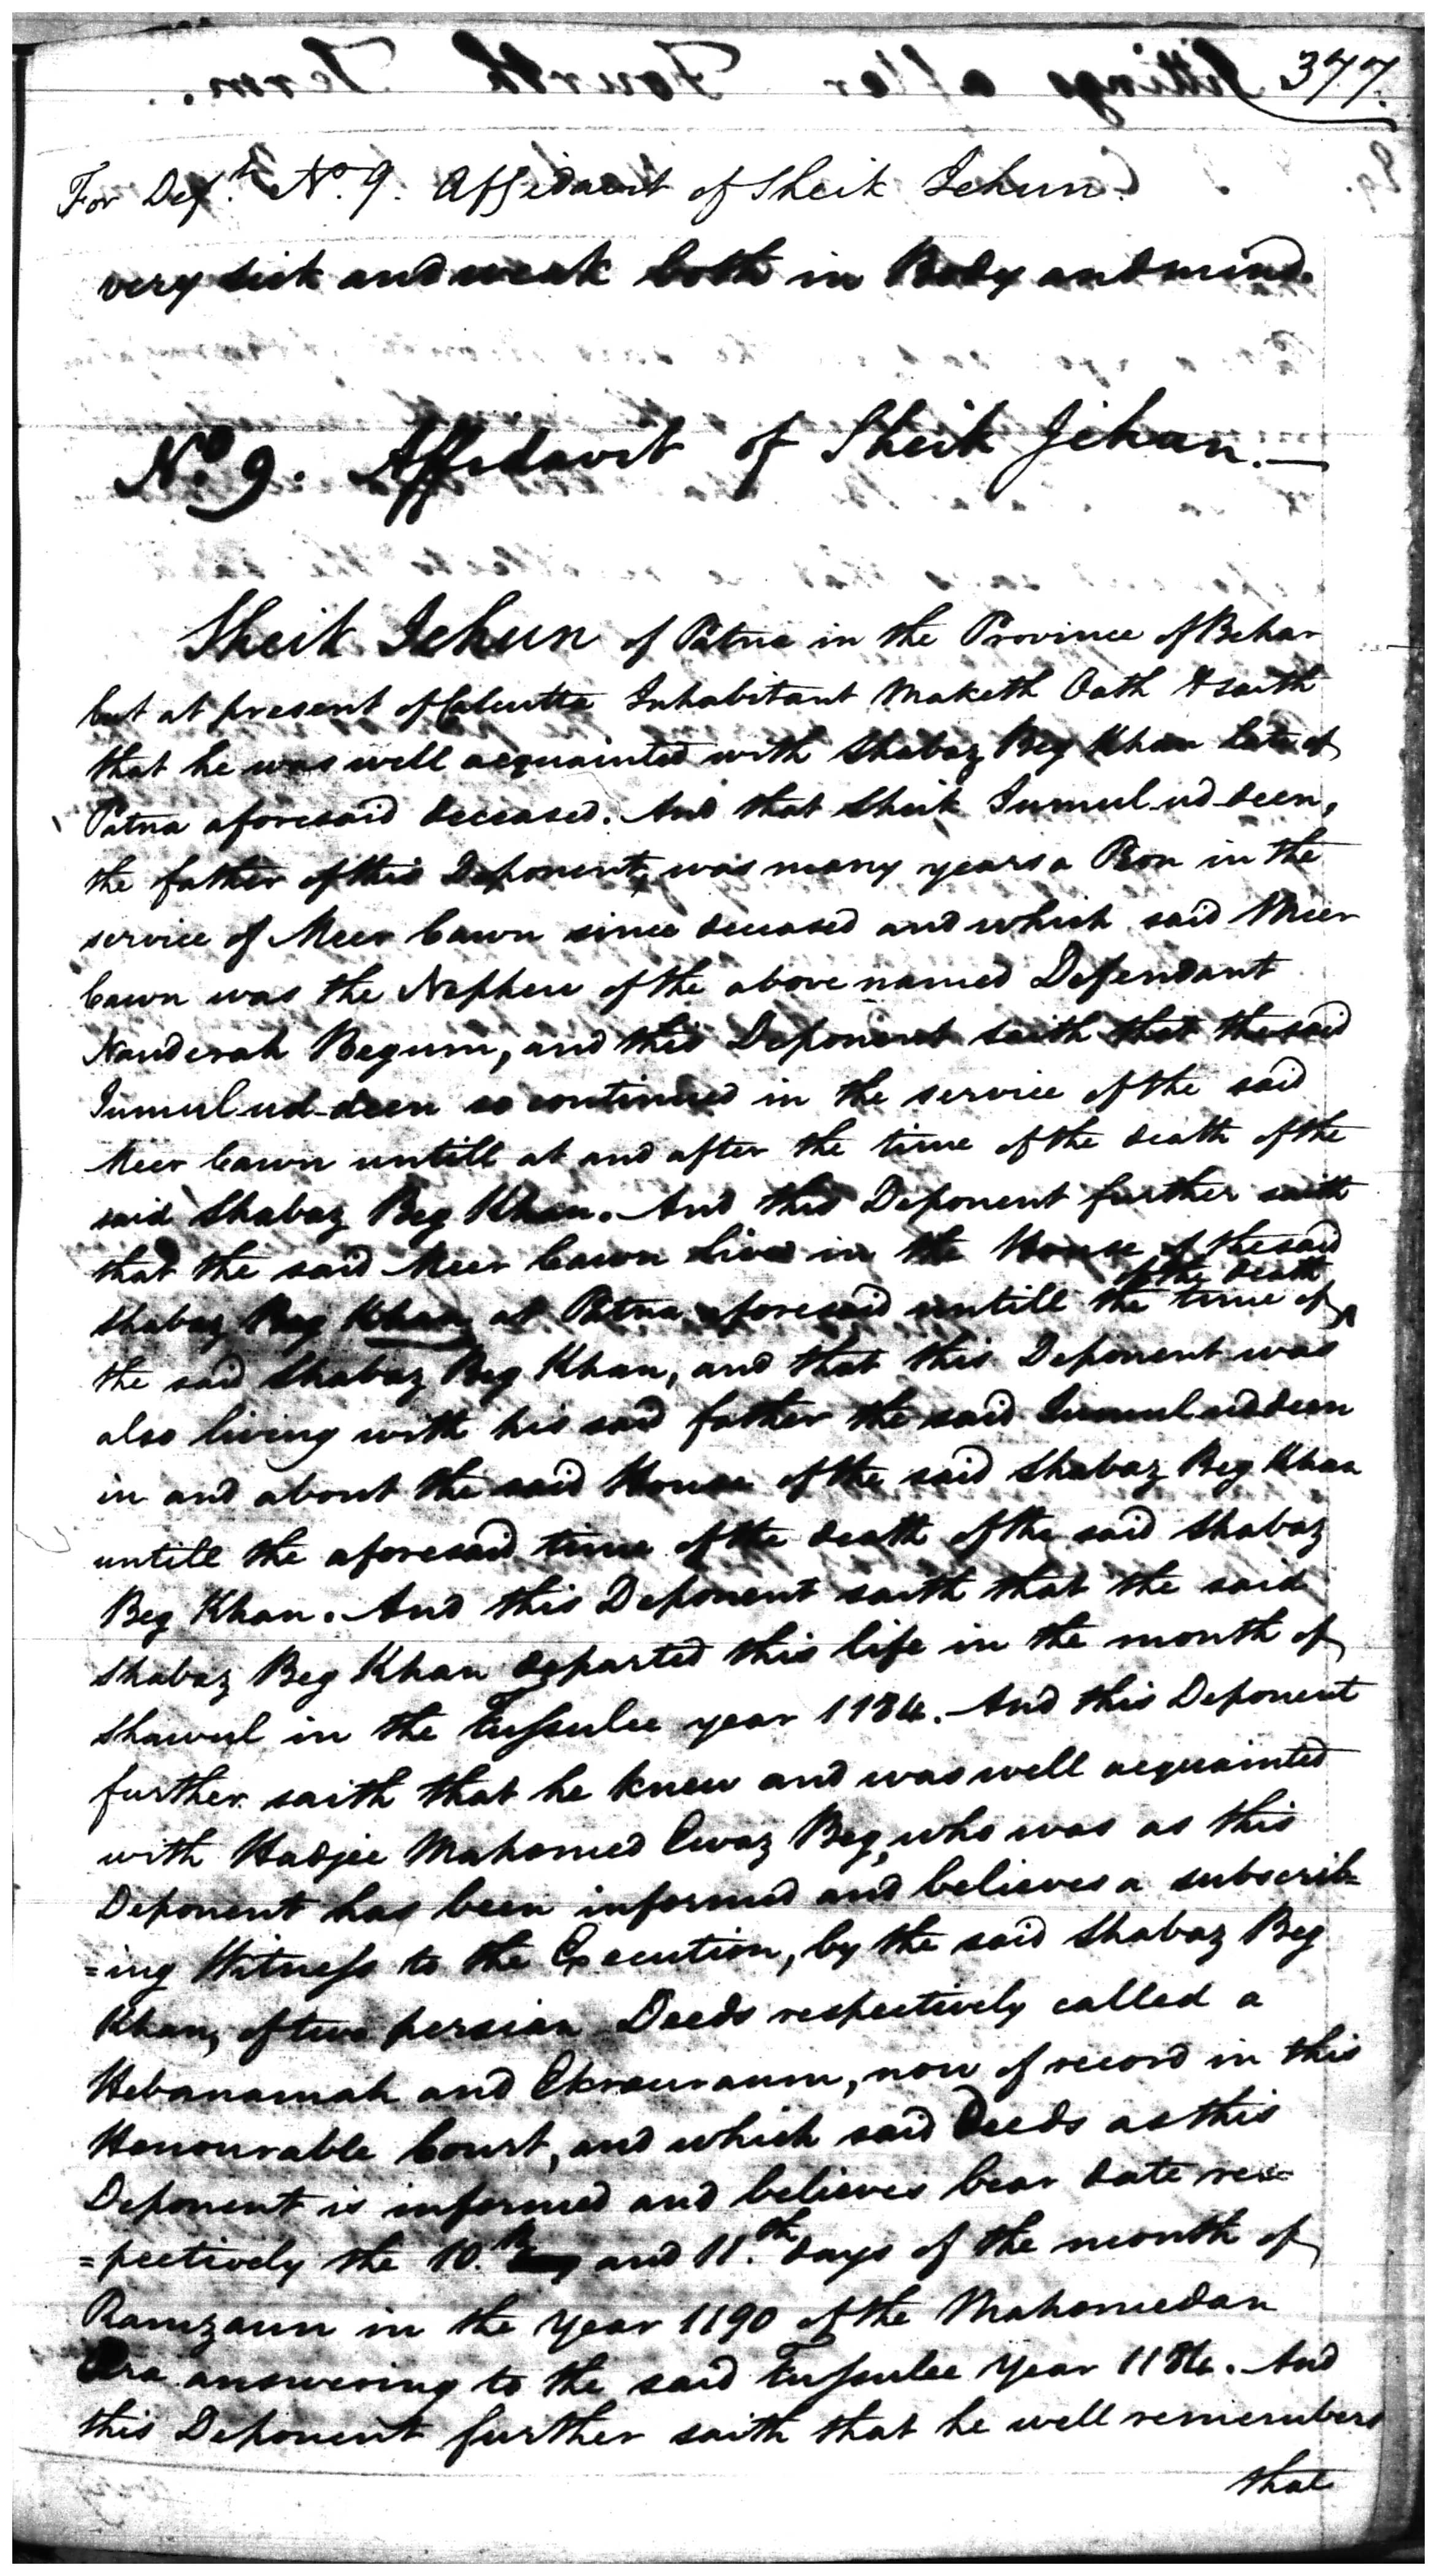 377.
For Def.t No. 9. Affidavit of Sheik Jehun.
very sick and weak both in Body and mind.
No. 9. Affidavit of Sheik Jehan.—
Sheik Jehun of Patna in the Province of Behar
but at present of Calcutta Inhabitant Maketh Oath & saith
that he was well acquainted with Shabaz Beg Khan late of
Patna aforesaid deceased. And that Sheik Jumul-ud-deen,
the father of this Deponent, was many years a Peon in the
service of Meer Cawn since deceased and which said Meer
Cawn was the Nephew of the above named Defendant
Nauderah Begum, and this Deponent saith that the said
Jumul ud-deen so continued in the service of the said
Meer Cawn untill at and after the time of the death of the
said Shabaz Beg Khan. And this Deponent further saith
that the said Meer Cawn lived in the House of the said
Shabaz Beg Khan at Patna aforesaid untill the time of the death of
the said Shabaz Beg Khan, and that this Deponent was
also living with his said father the said Jumul ud deen
in and about the said House of the said Shabaz Beg Khan
untill the aforesaid time of the death of the said Shabaz
Beg Khan. And this Deponent saith that the said
Shabaz Beg Khan departed this life in the month of
Shawul in the Fussulee year 1184. And this Deponent
further saith that he knew and was well acquainted
with Hadjee Mahomed Ewaz Beg, who was as this
Deponent has been informed and believes a subscrib=
=ing Witness to the Execution, by the said Shabaz Beg
Khan, of two persian Deeds respectively called a
Hebanamah and Ekrauraum, now of record in this
Honourable Court, and which said Deeds as this
Deponent is informed and believes bear date res=
=pectively the 10.th and 11.th days of the month of
Ramzaun in the Year 1190 of the Mahomedan
Era answering to the said Fussulee Year 1184. And
this Deponent further saith that he well remembers
that